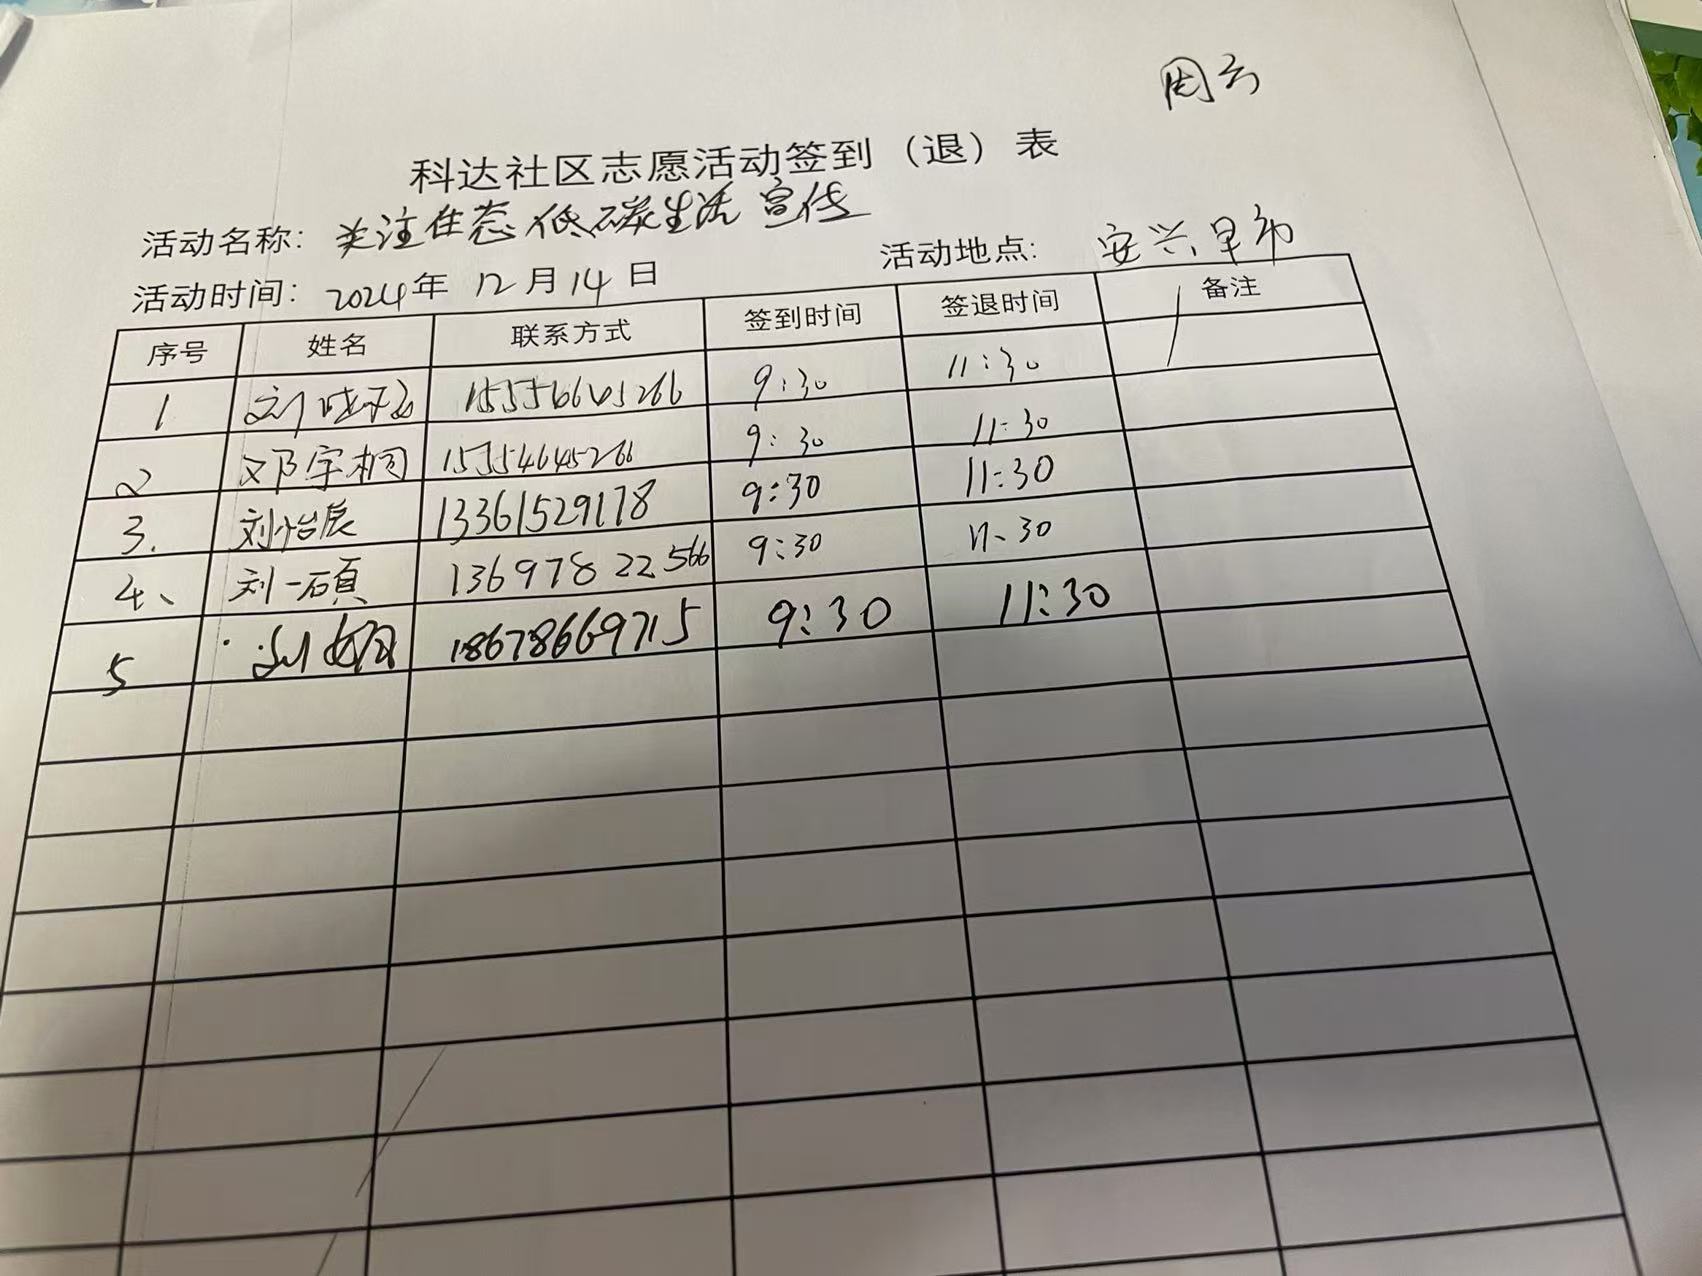 周云
科达社区志愿活动签到（退）表
活动名称：关注生态 低碳生活 宣传
活动时间：2024年 12月14日 活动地点：安兴早市
序号 姓名 联系方式 签到时间 签退时间 备注
1 刘 9:30 11:30
2 邓宇桐 15554645266 9:30 11:30
3. 刘怡辰 13361529178 9:30 11:30
4、 刘一硕 13697822566 9:30 11:30
5 18678669715 9:30 11:30